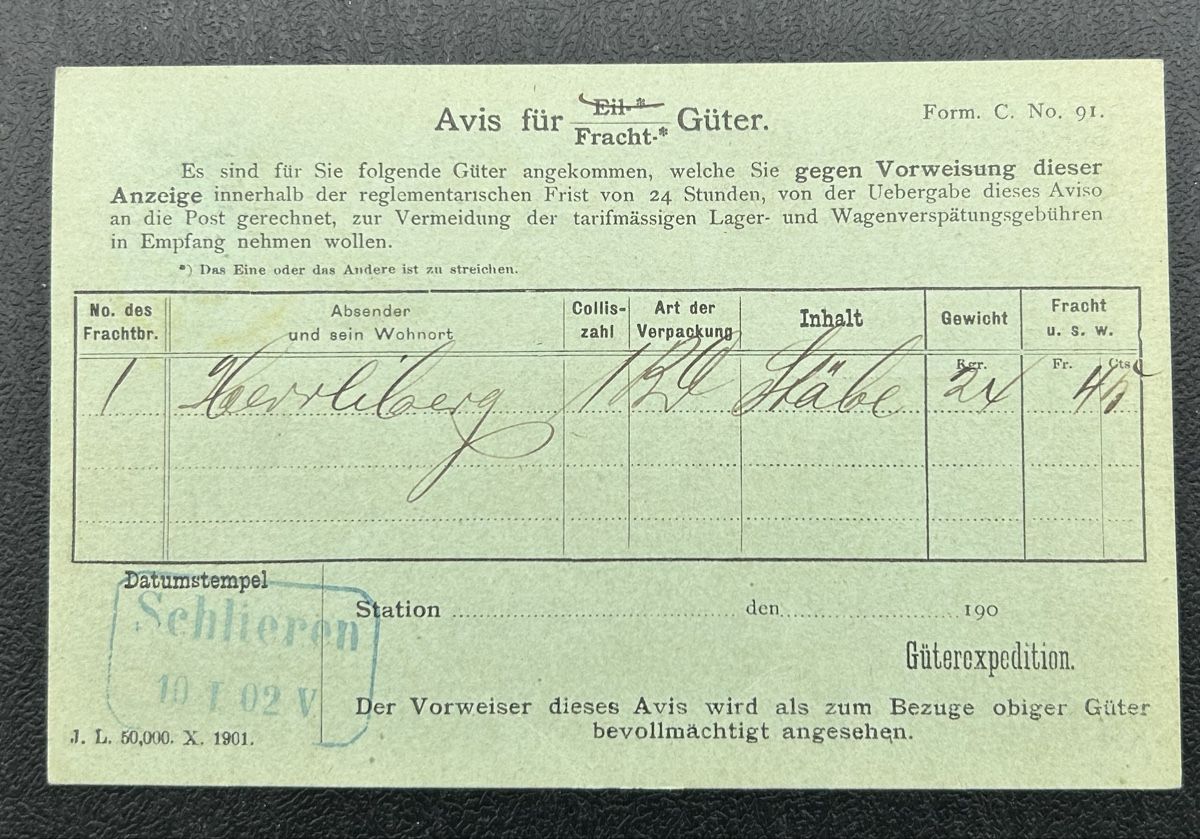 Avis für Eil-* Fracht-* Güter.
Form. C. No. 91.
Es sind für Sie folgende Güter angekommen, welche Sie gegen Vorweisung dieser
Anzeige innerhalb der reglementarischen Frist von 24 Stunden, von der Uebergabe dieses Aviso
an die Post gerechnet, zur Vermeidung der tarifmässigen Lager- und Wagenverspätungsgebühren
in Empfang nehmen wollen.
*) Das Eine oder das Andere ist zu streichen.
No. des Frachtbr.
Absender und sein Wohnort
Collis- zahl
Art der Verpackung
Inhalt
Gewicht
Fracht u. s. w.
Kgr. Fr. Cts
1 Herrliberg 1 Bd Stäbe 24 45
Datumstempel
Schlieren
10 I 02 V
Station den 190
Güterexpedition.
Der Vorweiser dieses Avis wird als zum Bezuge obiger Güter
bevollmächtigt angesehen.
J. L. 50,000. X. 1901.